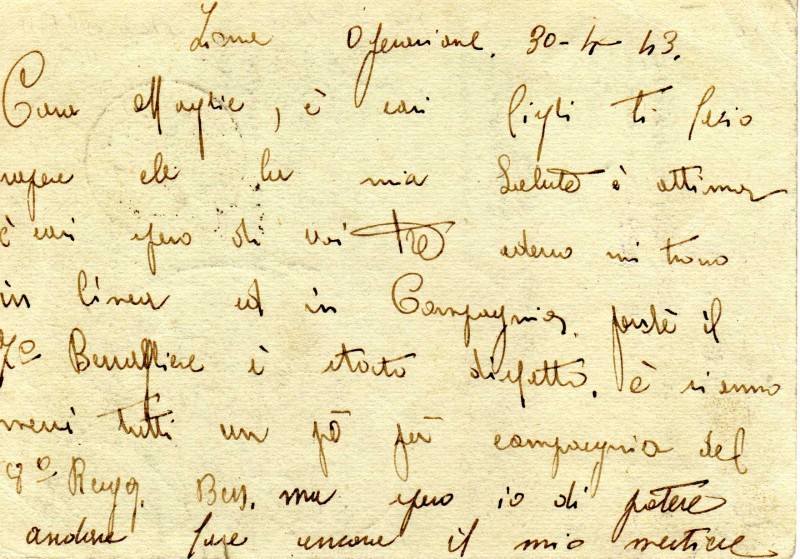 Zona Operazione. 30-4-43.
Cara Moglie, è cari figli ti facio
sapere che la mia Salute è ottima
è cosi spero di voi tre adesso mi trovo
in linea ed in Compagnia, perchè il
7º Bersagliere è stato disfatto. è ci anno
messi tutti un pò per compagnia del
8º Regg. Bers. ma spero io di potere
andare fare ancora il mio mestiere